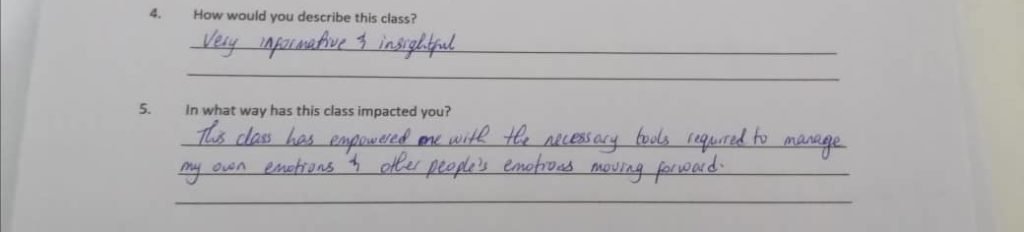 4. How would you describe this class?
Very informative & insightful
5. In what way has this class impacted you?
This class has empowered me with the necessary tools required to manage
my own emotions & other people's emotions moving forward.